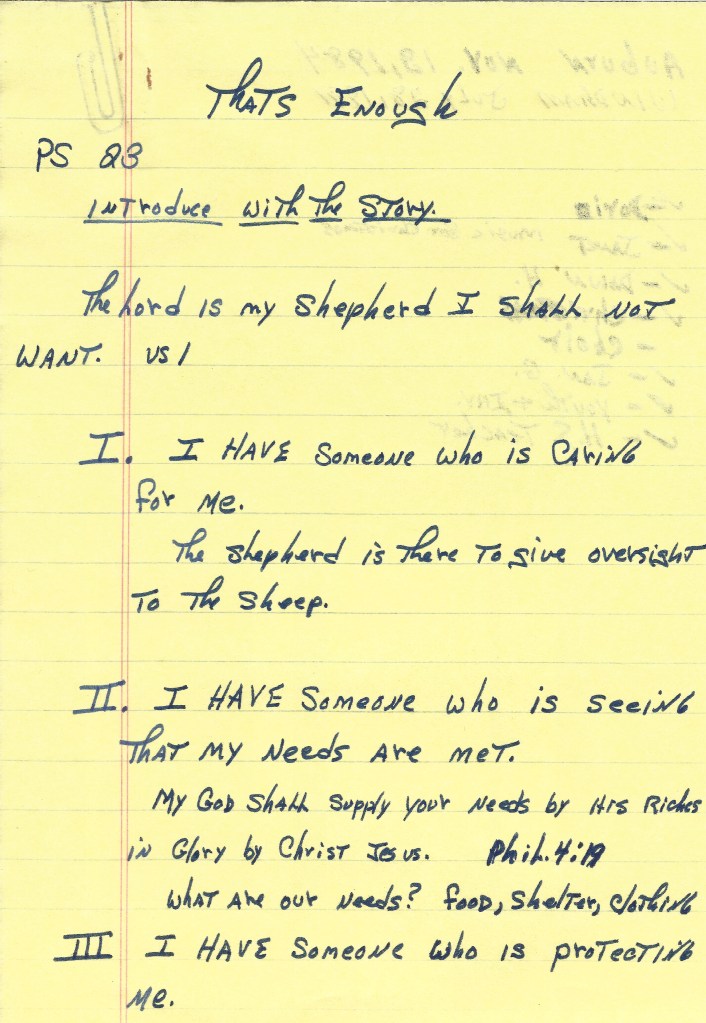 Thats Enough
PS 23
Introduce with the Story.
The Lord is my Shepherd I shall not
want. vs 1
I. I have someone who is caring
for me.
The Shepherd is there to give oversight
to the sheep.
II. I have someone who is seeing
that my needs are met.
My God shall supply your needs by His Riches
in Glory by Christ Jesus. Phil. 4:19
What are our needs? food, shelter, clothing
III I have someone who is protecting
me.